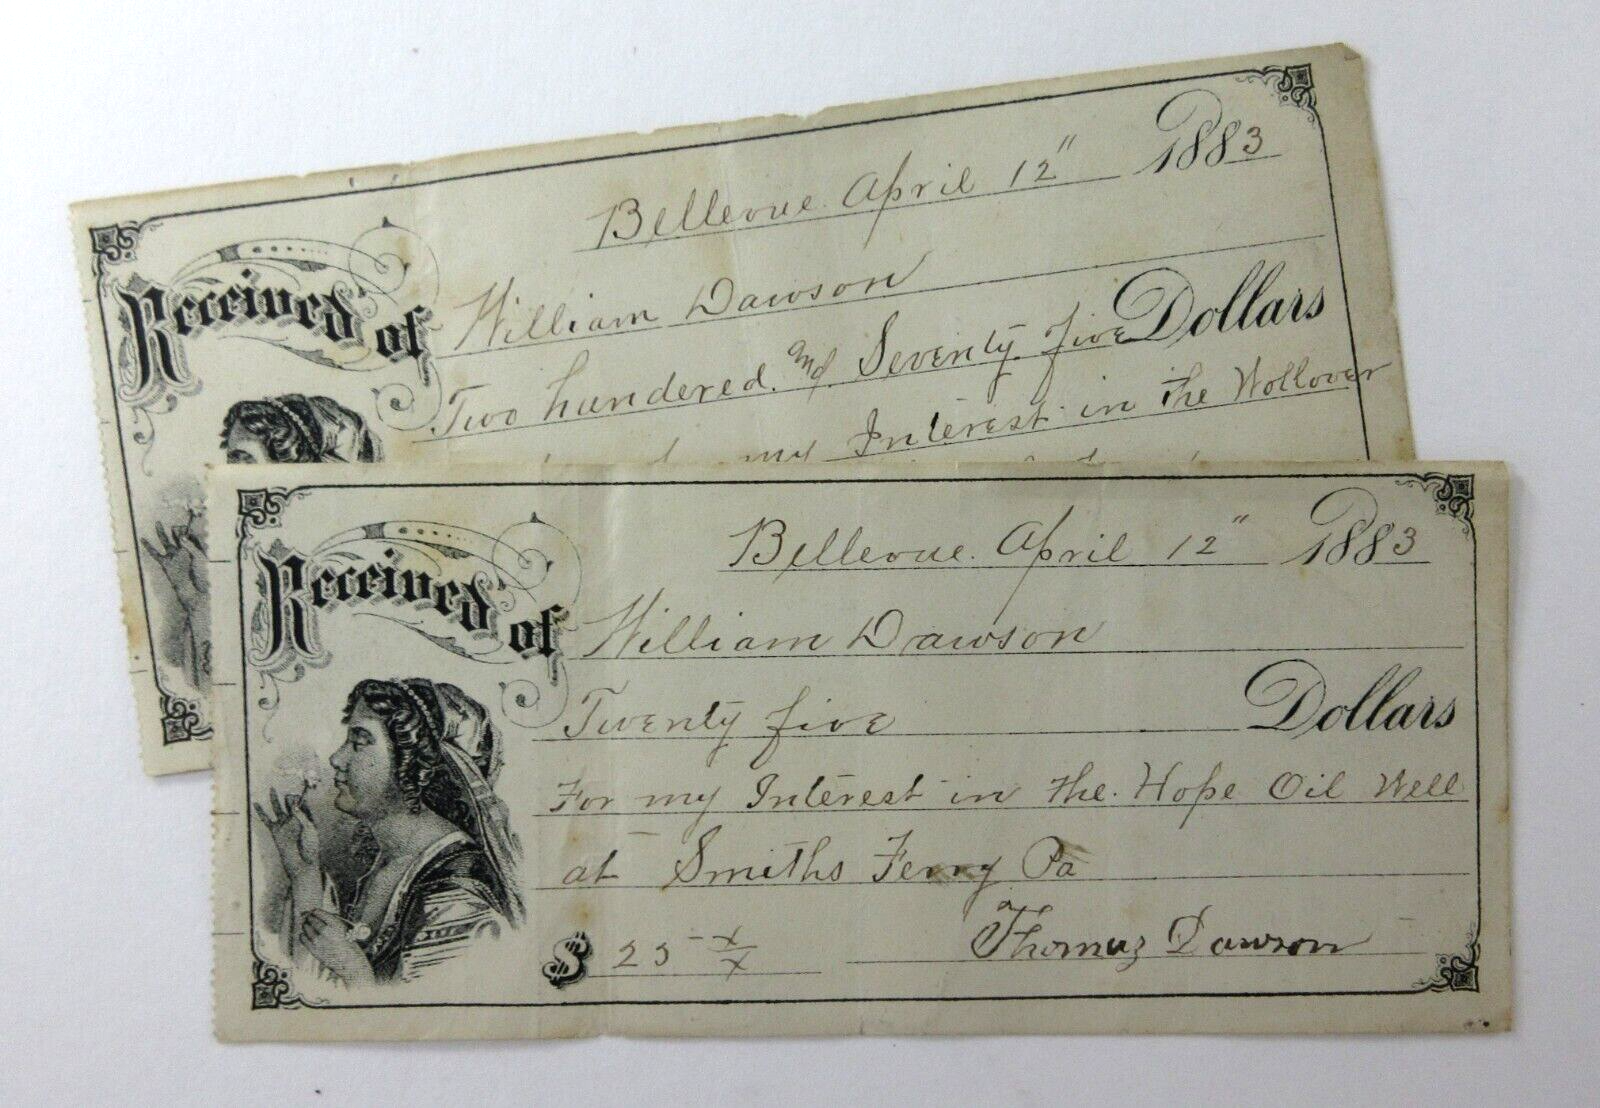 Bellevue April 12" 1883
Received of William Dawson
Two hundered and Seventy five Dollars
my Interest in the Wollover
Bellevue April 12" 1883
Received of William Dawson
Twenty five Dollars
For my Interest in the Hope Oil Well
at Smiths Ferry Pa
$ 25 x/x Thomas Dawson